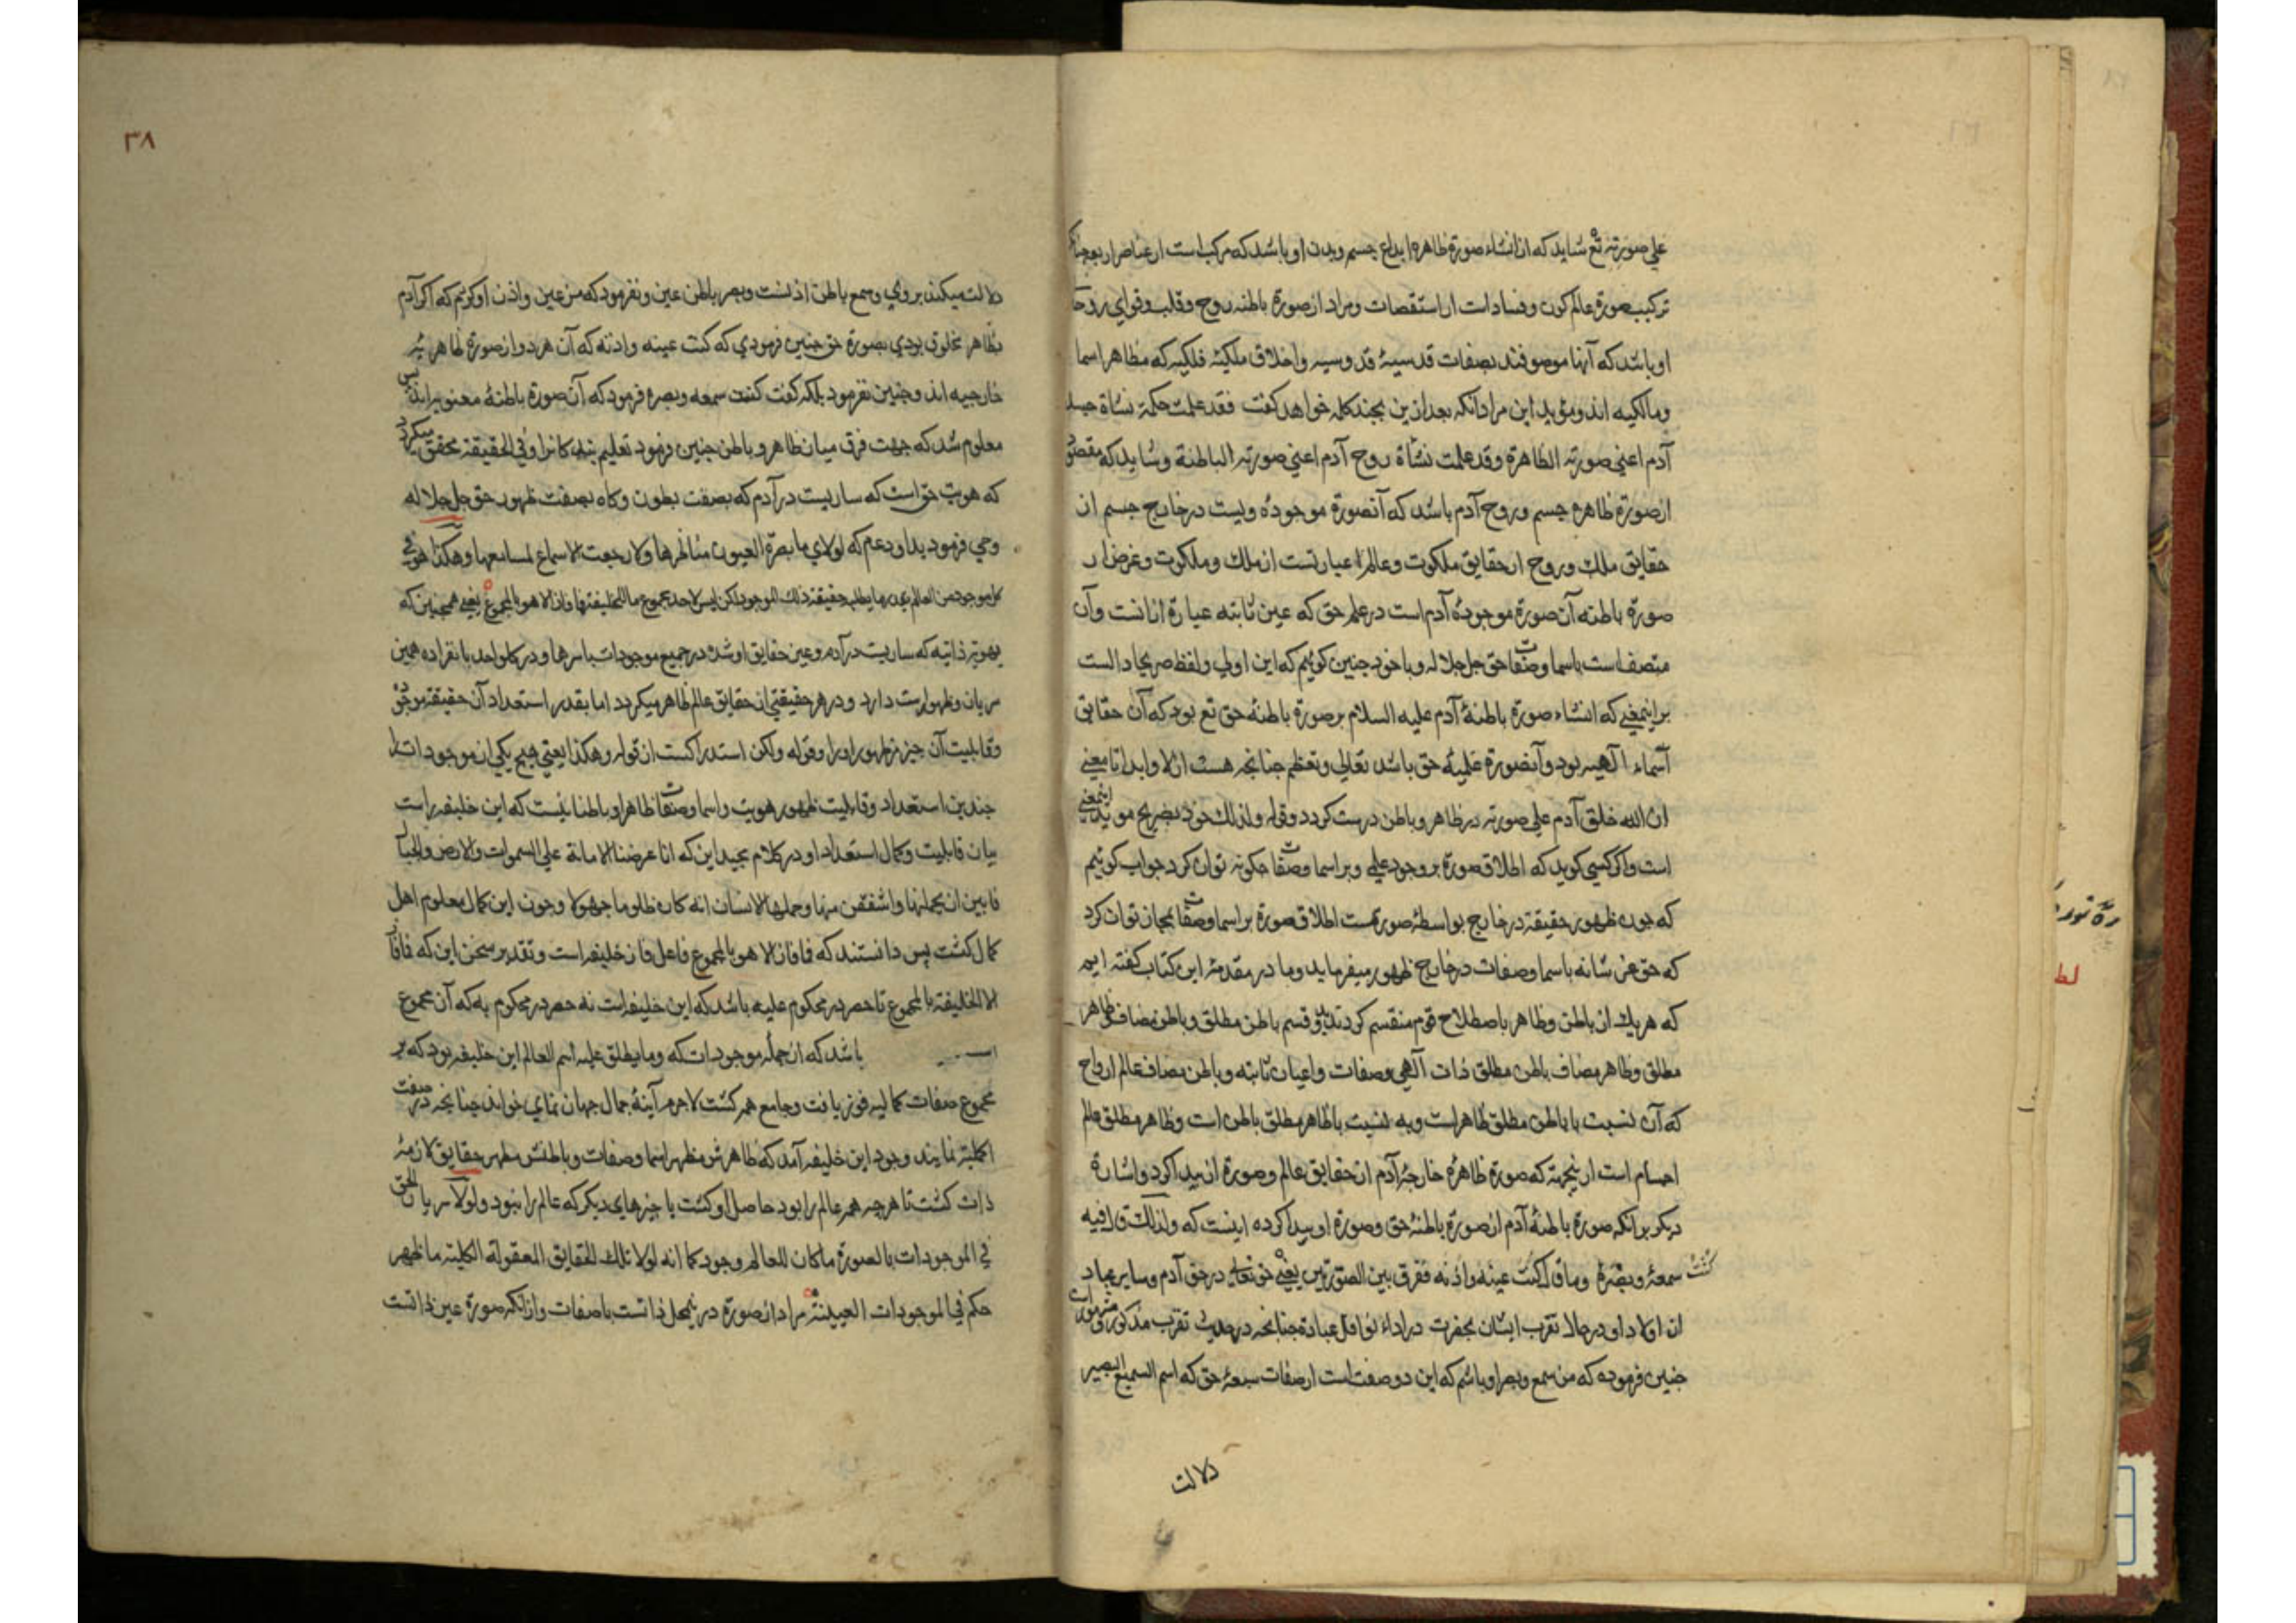 علی صورته تع شاید که از انشاء صورة ظاهره ابداع جسم وبدن او باشد که مرکب است از عناصر اربعه چنانکه
ترکیب صورة عالم کون وفساد است از استقصات ومراد از صورة باطنه روح وقلب وقوای روحا
او باشد که آنها موصوفند بصفات قدسیهٔ قدوسیه واخلاق ملکیهٔ فلکیه که مظاهر اسما
ومالکیه اند ومؤید این مراد آنکه بعد ازین بچند کلمه خواهد کفت فقد علمت حکمة نشاة جسد
آدم اعنی صورته الظاهرة وقد علمت نشاة روح آدم اعنی صورته الباطنة وشاید که مقصود
از صورة ظاهره جسم وروح آدم باشد که آنصورة موجودهٔ ویست در خارج جسم از
حقایق ملک وروح از حقایق ملکوت وعالم عبارتست از ملک وملکوت وغرض از
صورة باطنه آن صورة موجودهٔ آدم است در علم حق که عین ثابته عبارة از انست وآن
متصف است باسما وصفات حق جل جلاله ویا خود چنین کوئیم که این اولی ولفظ صریحا دالست
براینمعنی که انشاء صورة باطنهٔ آدم علیه السلام بر صورة باطنهٔ حق تع بود که آن حقایق
آسماء آلهیه بود وآنصورة علمیهٔ حق باشد تعالی وتعظم چنانچه هست ازلا وابدا تا معنی
ان الله خلق آدم علی صورته در ظاهر وباطن درست کردد وقوله ولذلک خود بصریح مؤید اینمعنی
است واکر کسی کوید که اطلاق صورة بر وجود علمی وبر اسما وصفات چکونه توان کرد جواب کوئیم
که چون ظهور حقیقة در خارج بواسطهٔ صورتست اطلاق صورة بر اسما وصفات بمجاز توان کرد
که حق عز شانه باسما وصفات در خارج ظهور میفرماید وما در مقدمهٔ این کتاب کفته ایم
که هر یک از باطن وظاهر باصطلاح قوم منقسم کردند بدو قسم باطن مطلق وباطن مضاف وظاهر
مطلق وظاهر مضاف باطن مطلق ذات آلهی وصفات واعیان ثابته وباطن مضاف عالم ارواح
که آن نسبت با باطن مطلق ظاهر است وبه نسبت باظاهر مطلق باطن است وظاهر مطلق عالم
اجسام است از نیجهته که صورة ظاهرهٔ خارجهٔ آدم از حقایق عالم وصورة آن پیدا کرد واشارة
دیکر برانکه صورة باطنهٔ آدم از صورة باطنهٔ حق وصورة او پیدا کرده اینست که ولذلک قال فیه
کنت سمعه وبصره وما قال کنت عینه واذنه ففرق بین الصورتین یعنی حق تعالی در حق آدم وسایر عباد
از اولاد او در حال تقرب ایشان بحضرت در اداء نوافل عبادة چنانچه در حدیث تقرب مذکور ومشهور است
چنین فرموده که من سمع وبصر او باشم که این دو صفت است از صفات سبعهٔ حق که اسم السمیع البصیر
دلالت
٣٨
دلالت میکند بروی وسمع باطن اذنست وبصر باطن عین ونفرمود که من عین واذن او کردم که اکر آدم
بظاهر مخلوق بودی بصورة حق چنین فرمودی که کنت عینه واذنه که آن هر دو از صورة ظاهریه
خارجیه اند وچنین نفرمود بلکه کفت کنت سمعه وبصره فرمود که آن صورة باطنهٔ معنویه اند پس
معلوم شد که جهت فرق میان ظاهر وباطن چنین فرمود تعلیم بندکانرا وفی الحقیقة محقق میکردد
که هویت حق است که ساریست در آدم که بصفت بطون وکاه بصفت ظهور حق جل جلاله
وحی فرمود بداود عم که لولای ما بصرة العیون مناظرها ولا رجعت الاسماع لمسامعها وهکذا هو فی
کل موجود من العالم بقدر ما یطلب حقیقة ذلک الموجود لکن لیس لاحد مجموع ما للخلیفة فما فاز الا هو بالمجموع یعنی همچنین که
بهویة ذاتیه که ساریست در آدم وعین حقایق او شده در جمیع موجودات باسرها ودر کل واحد بانفراده همین
سریان وظهور است دارد ودر هر حقیقتی از حقایق عالم ظاهر میکردد اما بقدر استعداد آن حقیقة موجوده
وقابلیت آن چیز مر ظهور اورا وقوله ولکن استدراکست از قوله وهکذا یعنی هیچ یکی از موجودات را
چندین استعداد وقابلیت ظهور هویت واسما وصفات ظاهرا وباطنا نیست که این خلیفه راست
بیان قابلیت وکمال استعداد او در کلام مجید این که انا عرضنا الامانة علی السموات والارض والجبال
فابین ان یحملنها واشفقن منها وحملها الانسان انه کان ظلوما جهولا وچون این کمال معلوم اهل
کمال کشت پس دانستند که فما فاز الا هو بالمجموع فاعل فاز خلیفه است وتقدیر سخن این که فما فاز
الا الخلیفة بالمجموع تا حصر در محکوم علیه باشد که این خلیفه است نه حصر در محکوم به که آن مجموع
است باشد که از جمله موجودات که وما یطلق علیه اسم العالم این خلیفه بود که بر
مجموع صفات کمالیه فوز یافت وجامع همه کشت لاجرم آینهٔ جمال جهان نمای خواند چنانچه در صفت
اکملیة نمایند وجود این خلیفه آمد که ظاهرش مظهر اسما وصفات وباطنش مظهر حقایق لازمهٔ
ذات کشت تا هرچه همه عالم را بود حاصل او کشت با چیزهای دیکر که عالم را نبود ولولا سریان الحق
فی الموجودات بالصورة ما کان للعالم وجود کما انه لولا تلک الحقایق المعقولة الکلیة ما ظهر
حکم فی الموجودات العینیة مراد از صورة در نمحل ذاتست باصفات وازآنکه صورة عین ذاتست